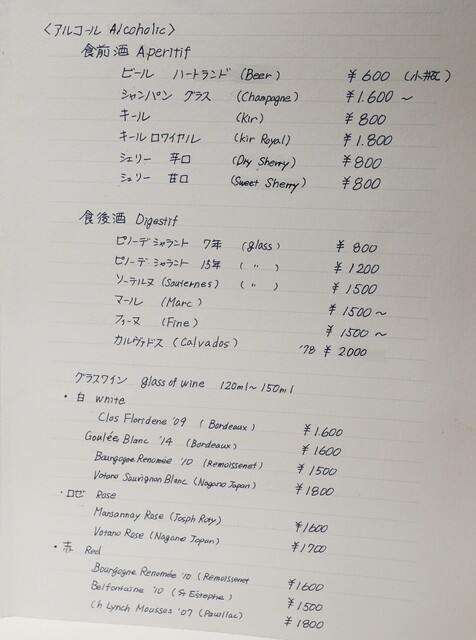 〈アルコール Alcoholic〉
食前酒 Aperitif
ビール ハートランド (Beer) ¥600 (小瓶)
シャンパン グラス (Champagne) ¥1.600～
キール (Kir) ¥800
キールロワイヤル (Kir Royal) ¥1.800
シェリー 辛口 (Dry Sherry) ¥800
シェリー 甘口 (Sweet Sherry) ¥800
食後酒 Digestif
ピノーデシャラント 7年 (glass) ¥800
ピノーデシャラント 15年 ( " ) ¥1200
ソーテルヌ (Sauternes) ( " ) ¥1500
マール (Marc) ¥1500～
フィーヌ (Fine) ¥1500～
カルヴァドス (Calvados) '78 ¥2000
グラスワイン glass of wine 120ml～150ml
・白 white
Clos Floridene '09 (Bordeaux) ¥1.600
Goulée Blanc '14 (Bordeaux) ¥1600
Bourgogne Renomée '10 (Remoissenet) ¥1500
Votano Sauvignon Blanc (Nagano Japan) ¥1800
・ロゼ Rose
Marsannay Rose (Josph Roty) ¥1600
Votano Rose (Nagano Japan) ¥1700
・赤 Red
Bourgogne Renomée '10 (Remoissenet ¥1600
Belfontaine '10 (St Estephe) ¥1500
Ch Lynch Moussas '07 (Pauillac) ¥1800